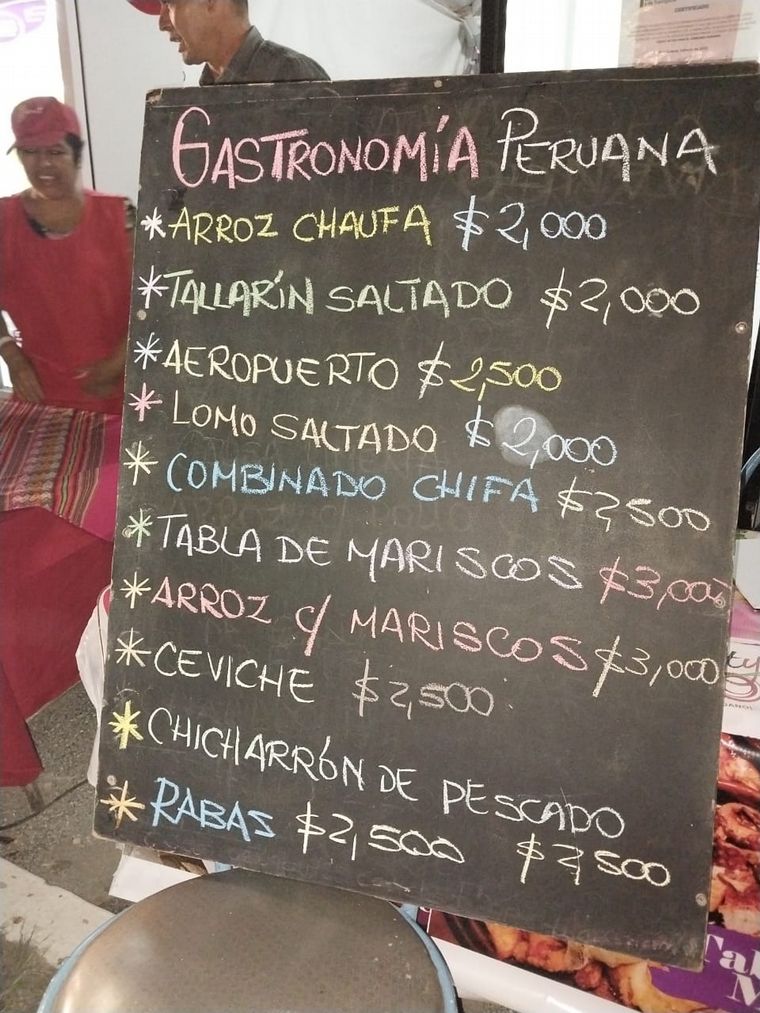 CERTIFICADO
GASTRONOMÍA PERUANA
* ARROZ CHAUFA $2,000
* TALLARÍN SALTADO $2,000
* AEROPUERTO $2,500
* LOMO SALTADO $2,000
* COMBINADO CHIFA $2,500
* TABLA DE MARISCOS $3,000
* ARROZ C/ MARISCOS $3,000
* CEVICHE $2,500
* CHICHARRÓN DE PESCADO
* RABAS $2,500 $2,500